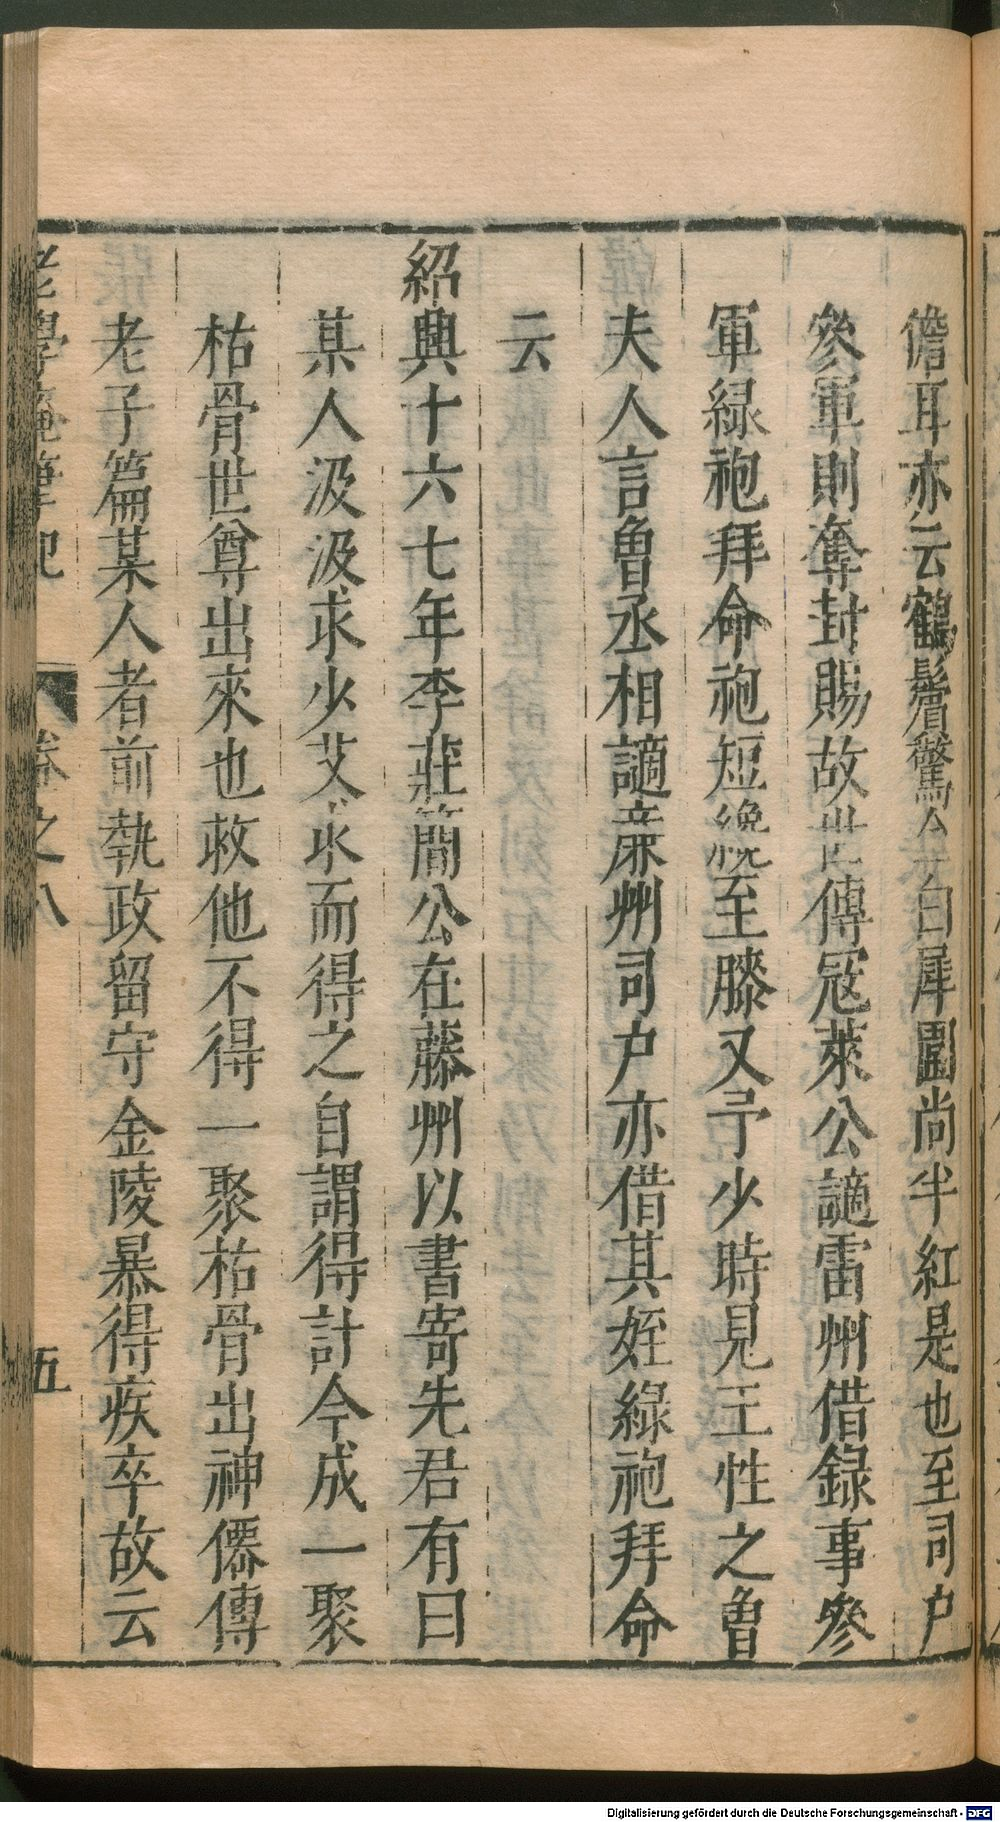 儋耳亦云鶴鬢驚全白犀圍尚半紅是也至司户
參軍則奪封賜故世傳宼萊公謫雷州借録事參
軍緑袍拜命袍短纔至膝又予少時見王性之曾
夫人言曾丞相謫亷州司户亦借其姪緑袍拜命
云
紹興十六七年李莊簡公在藤州以書寄先君有曰
某人汲汲求少艾求而得之自謂得計今成一聚
枯骨世尊出來也救他不得一聚枯骨出神僊傳
老子篇某人者前執政留守金陵暴得疾卒故云
老學菴筆記 卷之八 五
Digitalisierung gefördert durch die Deutsche Forschungsgemeinschaft - DFG